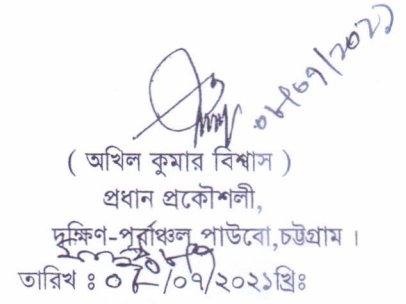 ০৮/০৭/২০২১
( অখিল কুমার বিশ্বাস )
প্রধান প্রকৌশলী,
দক্ষিণ-পূর্বাঞ্চল, পাউবো,চট্টগ্রাম ।
তারিখ ঃ ০৮/০৭/২০২১খ্রিঃ